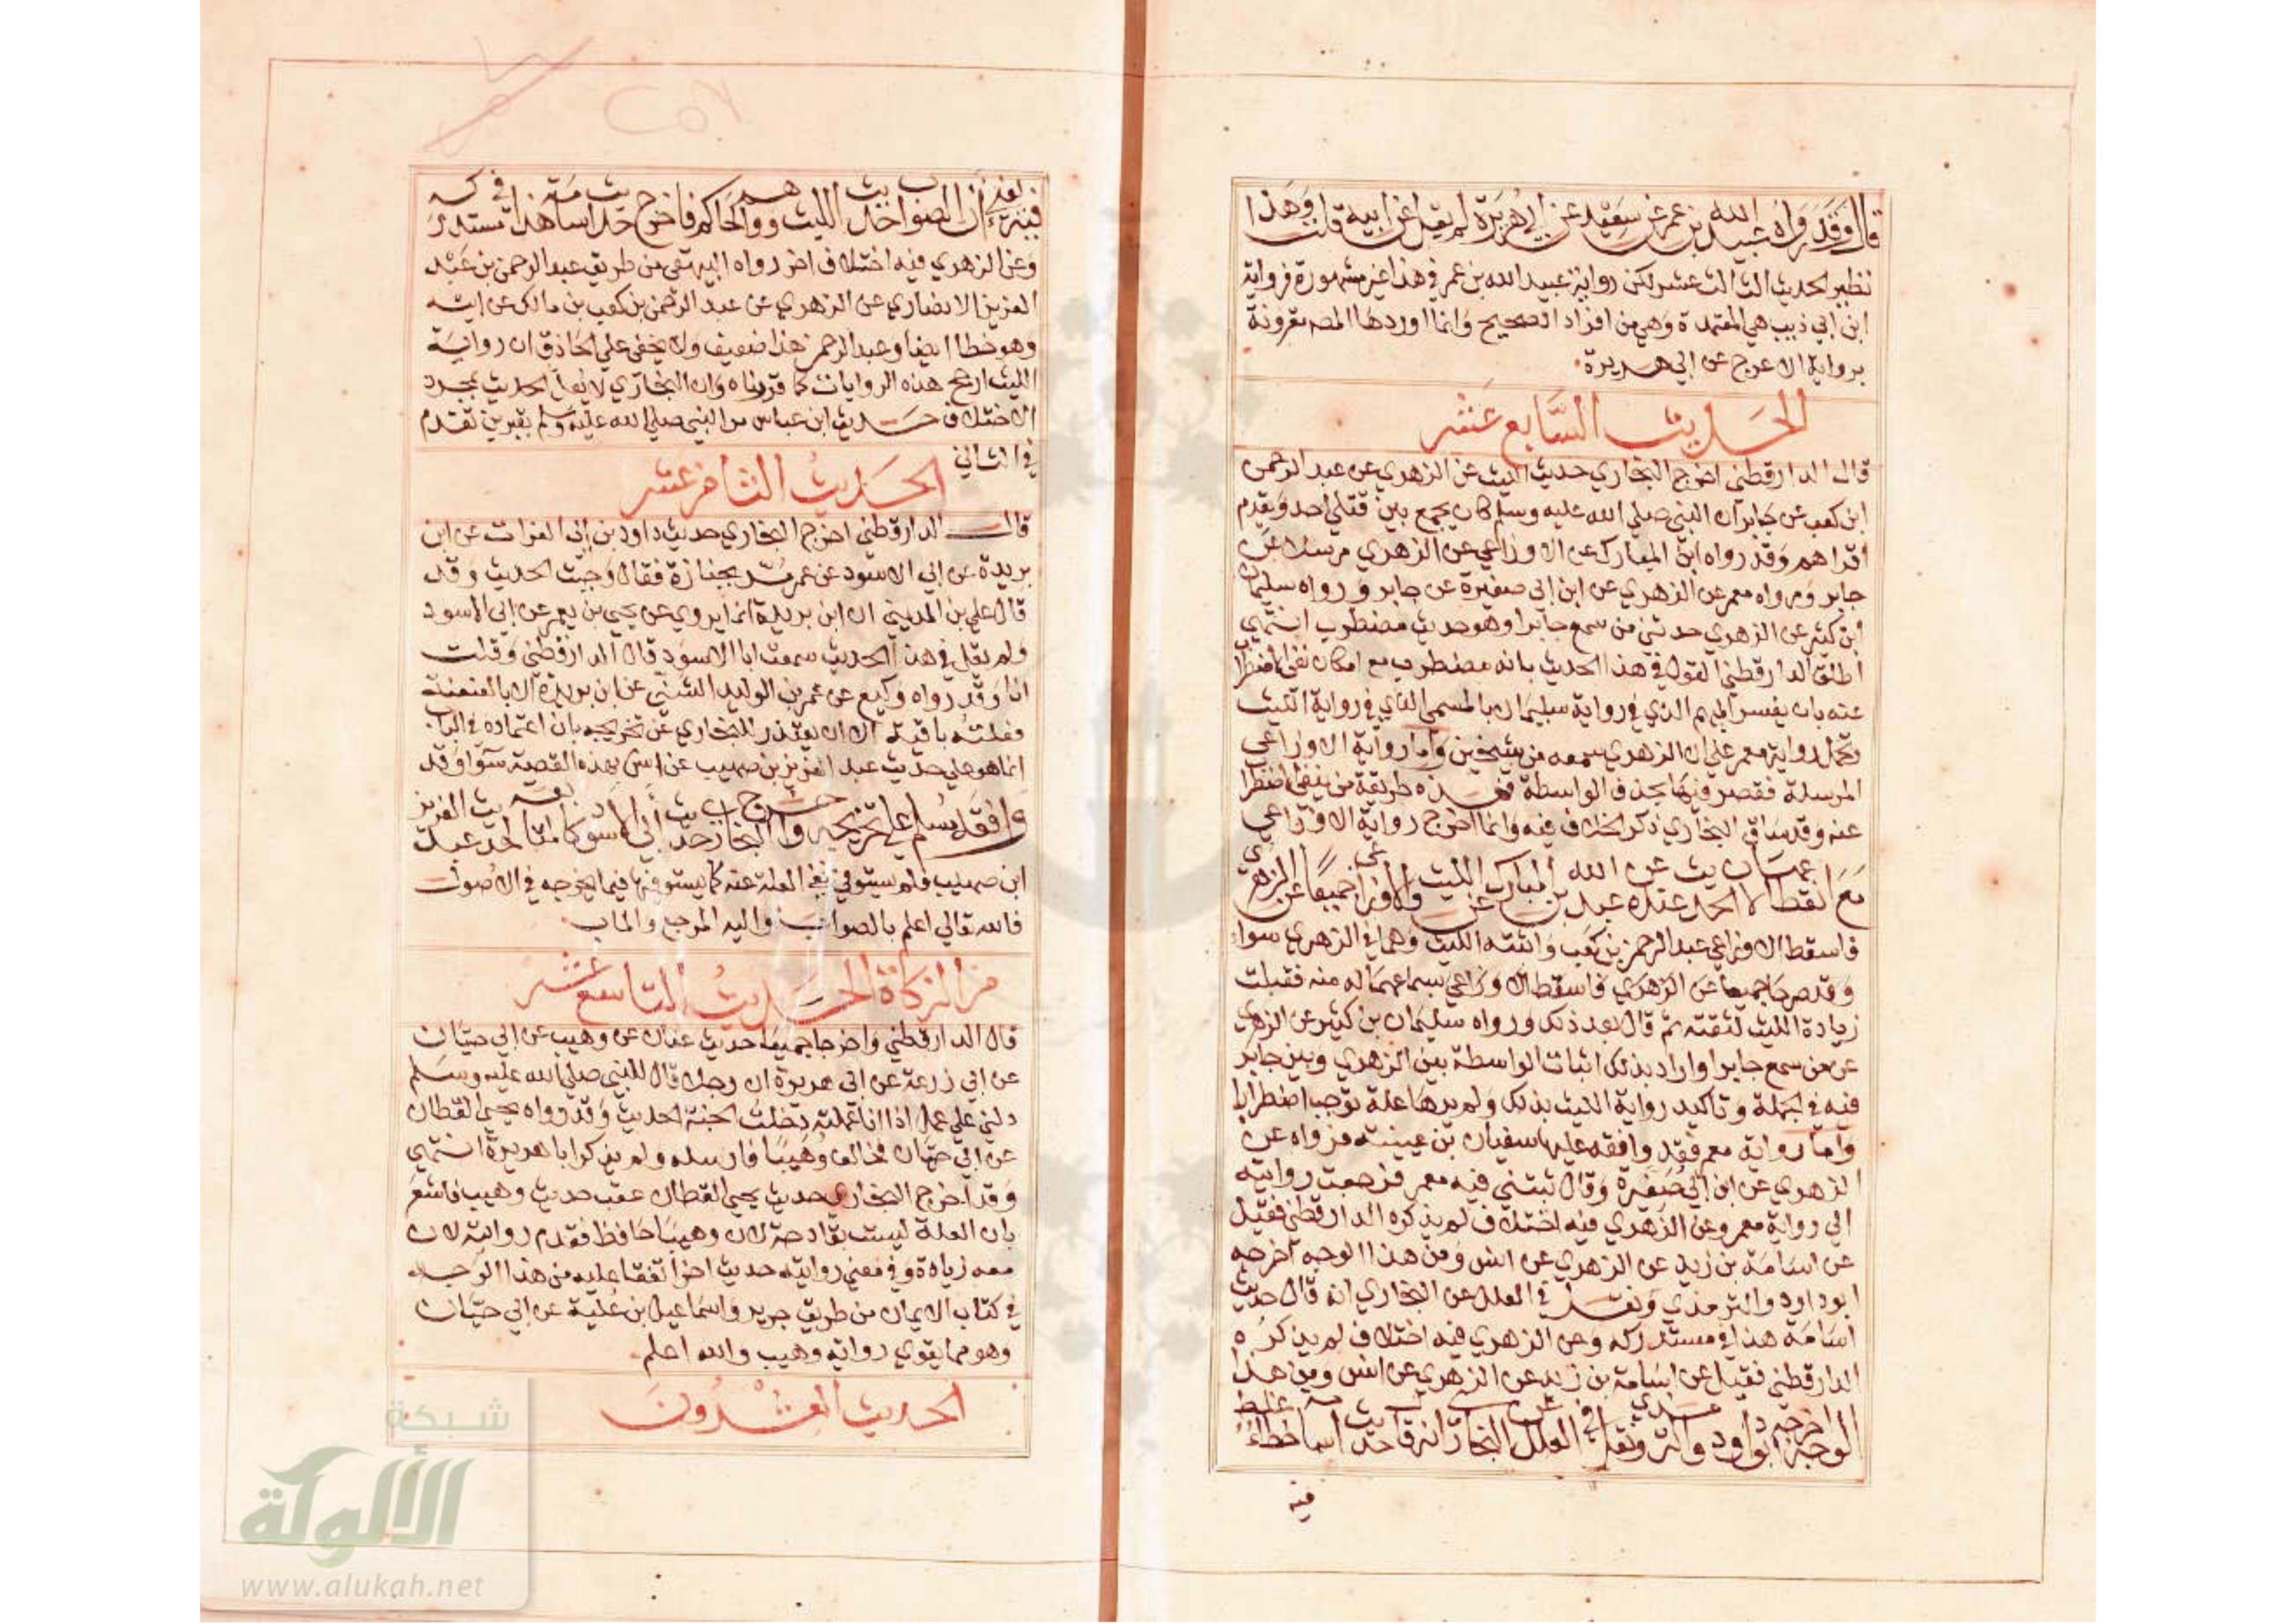 قال وقد رواه عبيد الله بن عمر عن سعيد عن ابي هريرة لم يقل عن ابيه قلت وهذا
نظير الحديث الثالث عشر لكن رواية عبيد الله بن عمر في هذا غير مشهورة فرواية
ابن ابي ذيب هي المعتمدة وهي من افراد الصحيح وانما اوردها المص مقرونة
برواية الاعرج عن ابي هريرة
الحديث السابع عشر
قال الدارقطني اخرج البخاري حديث الليث عن الزهري عن عبد الرحمن
ابن كعب عن جابر ان النبي صلى الله عليه وسلم كان يجمع بين قتلى احد ويقدم
اقراهم وقد رواه ابن المبارك عن الاوزاعي عن الزهري مرسلا عن
جابر ورواه معمر عن الزهري عن ابن ابي صغيرة عن جابر ورواه سليمان
ابن كثير عن الزهري حدثني من سمع جابرا وهو حديث مضطرب انتهى
اطلق الدارقطني القول في هذا الحديث بانه مضطرب مع امكان نفي الاضطراب
عنه بان يفسر المبهم الذي في رواية سليمان بالمسمى الذي في رواية الليث
وتحمل رواية معمر على ان الزهري سمعه من شيخين واما رواية الاوزاعي
المرسلة فقصر فيها بحذف الواسطة فهذه طريقة من ينفي الاضطراب
عنه وقد ساق البخاري ذكر الخلاف فيه وانما اخرج رواية الاوزاعي
مع انقطاعها لان الحديث عنده عن عبد الله بن المبارك عن الليث والاوزاعي جميعا عن الزهري
فاسقط الاوزاعي عبد الرحمن بن كعب واثبته الليث وهما في الزهري سواء
وقد صرحا جميعا عن الزهري فاسقط الاوزاعي سماعهما له منه فقبلت
زيادة الليث لثقته ثم قال بعد ذلك ورواه سليمان بن كثير عن الزهري
عن من سمع جابرا واراد بذلك اثبات الواسطة بين الزهري وبين جابر
فيه في الجملة وتاكيد رواية الليث بذلك ولم يرها علة توجب اضطرابا
واما رواية معمر فقد وافقه عليها سفيان بن عيينة فرواه عن
الزهري عن ابن ابي صغيرة وقال ثبتني فيه معمر فرجعت روايته
الى رواية معمر وعن الزهري فيه اختلاف لم يذكره الدارقطني فقيل
عن اسامة بن زيد عن الزهري عن انس ومن هذا الوجه اخرجه
ابو داود والترمذي ونقل في العلل عن البخاري انه قال حديث
اسامة هذا في مستدركه وعن الزهري فيه اختلاف لم يذكره
الدارقطني فقيل عن اسامة بن زيد عن الزهري عن انس ومن هذا
الوجه اخرجه ابو داود والترمذي ونقل في العلل عن البخاري انه قال حديث اسامة خطاء غلط
فيه
٢٥٧
الليث ووهم الحاكم فاخرج حديث اسامة هذا في مستدركه
وعن الزهري فيه اختلاف اخر رواه البيهقي من طريق عبد الرحمن بن عبد
العزيز الانصاري عن الزهري عن عبد الرحمن بن كعب بن مالك عن ابيه
وهو خطا ايضا وعبد الرحمن هذا ضعيف ولا يخفى على الحاذق ان رواية
الليث ارجح هذه الروايات كما قررناه وان البخاري لا يعل الحديث بمجرد
الاختلاف حديث ابن عباس مر النبي صلى الله عليه وسلم بقبرين تقدم
في الثاني
الحديث الثامن عشر
قال الدارقطني اخرج البخاري حديث داود بن ابي الفرات عن ابن
بريدة عن ابي الاسود عن عمر مر بجنازة فقال وجبت الحديث وقد
قال علي بن المديني ان ابن بريدة انما يروي عن يحيى بن يعمر عن ابي الاسود
ولم يقل في هذا الحديث سمعت ابا الاسود قال الدارقطني وقلت
انا وقد رواه وكيع عن عمر بن الوليد الشني عن ابن بريدة الا بالعنعنة
فعلته باقية الا ان يعتذر للبخاري عن تخريجه بان اعتماده في الباب
انما هو على حديث عبد العزيز بن صهيب عن انس بهذه القصة سوا وقد
وافقه مسلم على تخريجه واخرج البخاري حديث ابي الاسود كالمتابعة لحديث عبد العزيز
ابن صهيب فلم يستوفي نفي العلة عنه كما يستوفيها فيما يخرجه في الاصول
فالله تعالى اعلم بالصواب واليه المرجع والماب
من الزكاة الحديث التاسع عشر
قال الدارقطني واخرجا جميعا حديث عفان عن وهيب عن ابي حيان
عن ابي زرعة عن ابي هريرة ان رجلا قال للنبي صلى الله عليه وسلم
دلني على عمل اذا انا عملته دخلت الجنة الحديث وقد رواه يحيى القطان
عن ابي حيان فخالف وهيبا فارسله ولم يذكر ابا هريرة انتهى
وقد اخرج البخاري حديث يحيى القطان عقب حديث وهيب فاشعر
بان العلة ليست بقادحة لان وهيبا حافظ فقدم روايته لان
معه زيادة وفي معنى روايته حديث اخر اتفقا عليه من هذا الوجه
في كتاب الايمان من طريق جرير واسماعيل بن علية عن ابي حيان
وهو مما يقوي رواية وهيب والله اعلم
الحديث العشرون
شبكة
الألوكة
www.alukah.net